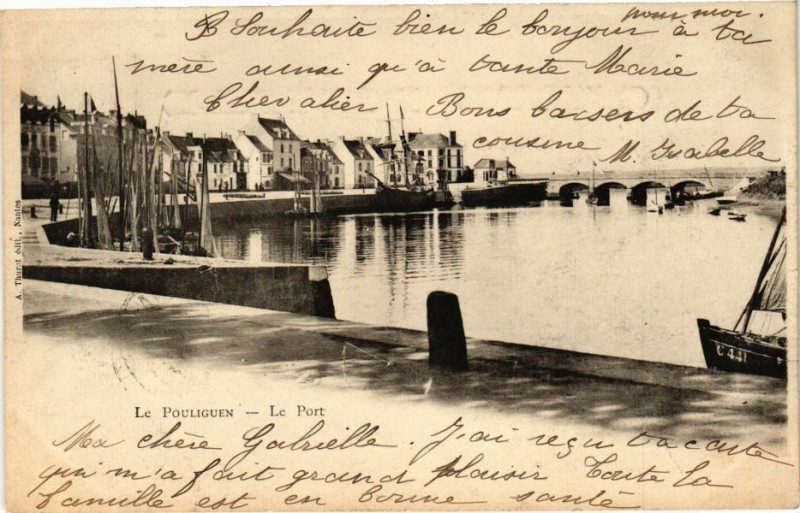 pour moi.
B Souhaite bien le bonjour à ta
mère ainsi qu'à tante Marie
Chevalier Bons baisers de ta
cousine
M. Isabelle
A. Thuret édit., Nantes
C441
Le Pouliguen — Le Port
Ma chère Gabrielle. J'ai reçu ta carte
qui m'a fait grand plaisir Toute la
famille est en bonne santé